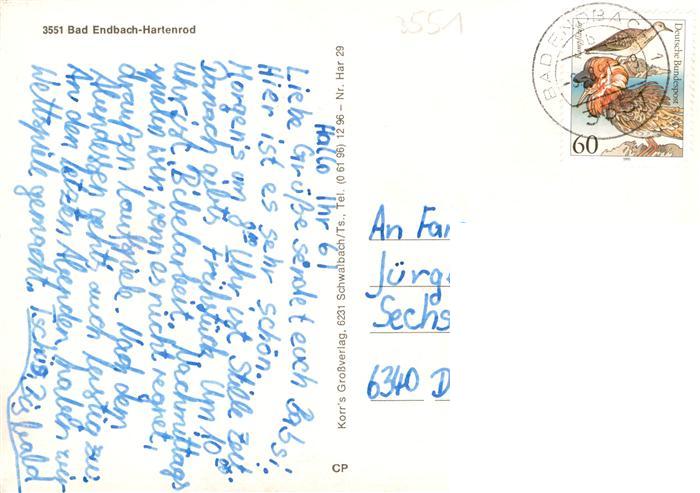 3551 Bad Endbach-Hartenrod
3551
Hallo Ihr 6!
Liebe Grüße sendet euch Babsi,
Hier ist es sehr schön.
Morgens um 8⁰⁰ Uhr ist Stille Zeit.
Danach gibts Frühstück. Um 10⁰⁰
Uhr ist Bibelarbeit. Nachmittags
spielen wir, wenn es nicht regnet,
draußen Laufspiele. Nach dem
Abendessen gehts auch lustig zu.
An den letzten Abenden haben wir
Wettspiele gemacht. Tschüß, Bis bald
Korr's Großverlag, 6231 Schwalbach/Ts., Tel. (0 61 96) 12 96 – Nr. Har 29
CP
BAD ENDBACH
1
Deutsche Bundespost
60
An Fam
Jürg
Sechs
6340 D